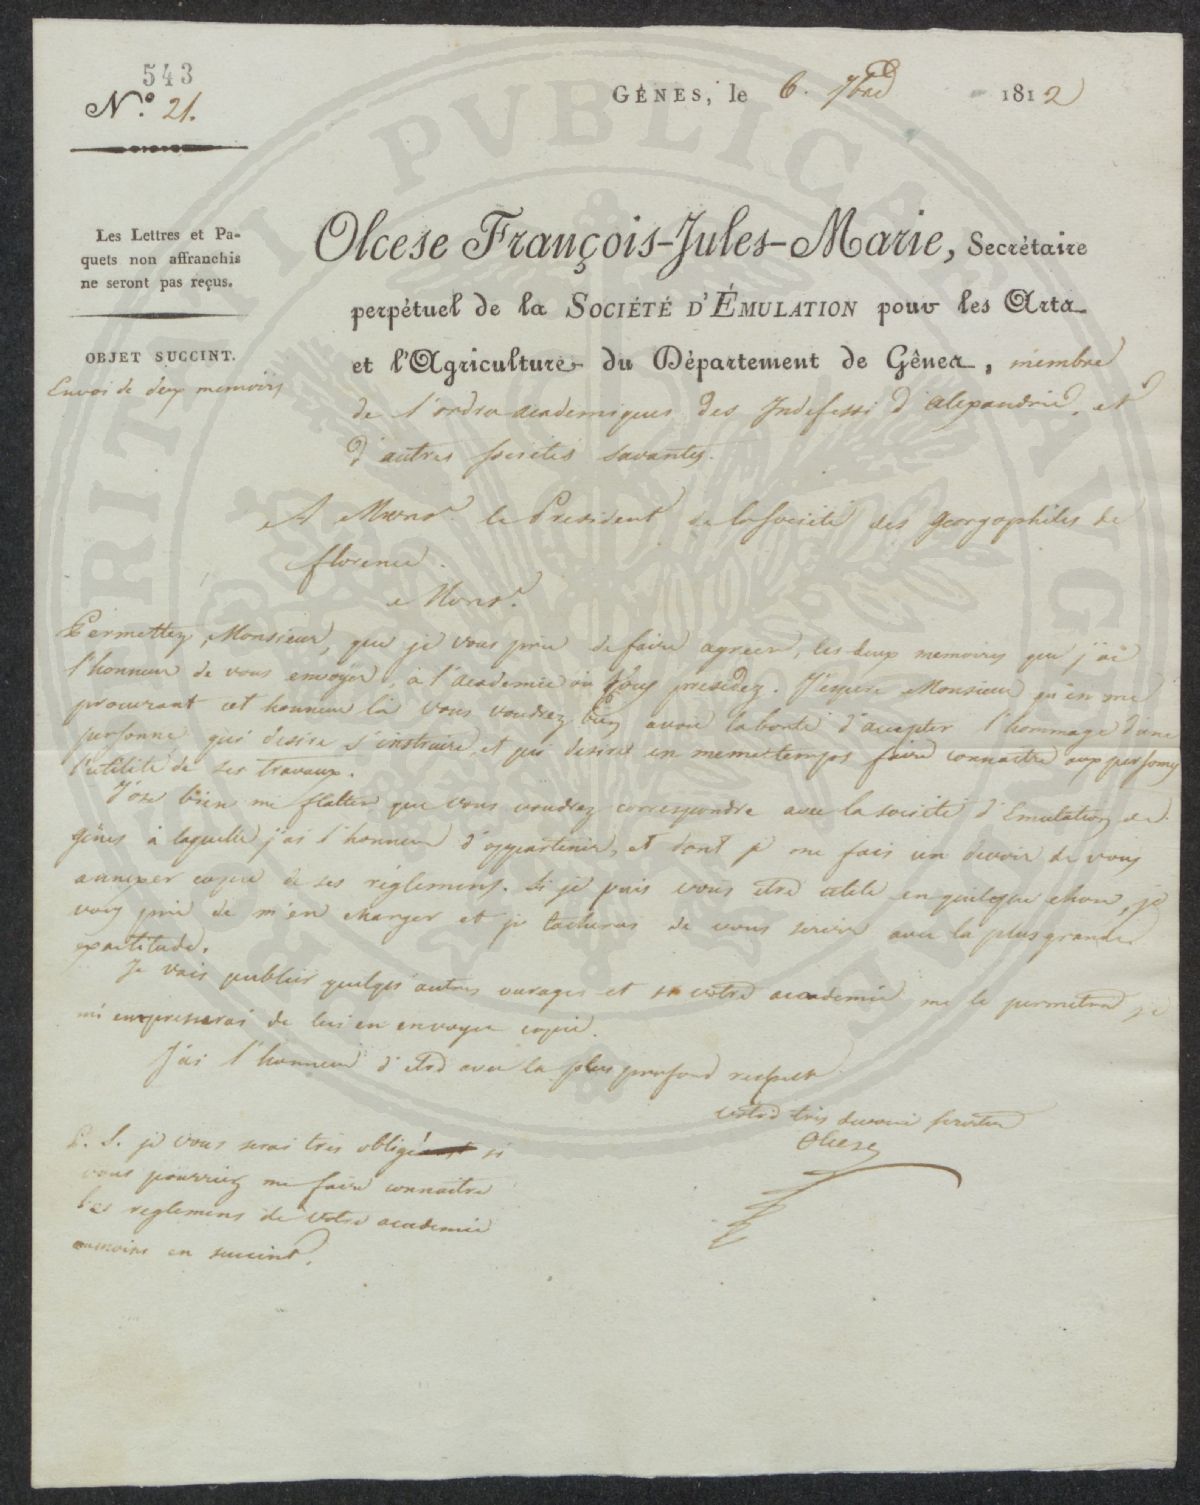 543
N.° 21.
GÊNES, le 6. 7bre 1812
Les Lettres et Pa-
quets non affranchis
ne seront pas reçus.
OBJET SUCCINT.
Envoi de deux memoires
Olcese François-Jules-Marie, Secrétaire
perpétuel de la SOCIÉTÉ D'ÉMULATION pour les Arts
et l'Agriculture du Département de Gênes, membre
de l'ordre academiques des Indefessi d'alexandrie, et
d'autres societés savantes.
A Monsr. le President de la Societé des georgophiles de
florence.
Monsr.
Permettez, Monsieur, que je vous prie de faire agreer, les deux memoires que j'ai
l'honneur de vous envoyer, à l'academie où vous presidez. J'espere Monsieur qu'en me
procurant cet honneur là vous voudrez bien avoir la bonté d'accepter l'hommage d'une
personne qui desire s'instruire, et qui desire en meme temps faire connaitre aux persones
l'utilité de ses travaux.
J'ose bien me flatter que vous voudrez correspondre avec la societé d'Emulation de
gênes à laquelle j'ai l'honneur d'appartenir, et dont je me fais un devoir de vous
annexer copie de ses réglemens. Si je puis vous etre utile en quelque chose, je
vous prie de m'en charger et je tacheras de vous servir avec la plus grande
exactitude.
Je vais publier quelqes autres ouvrages et si votre academie me le permetra je
m'empresserai de lui en envoyer copie.
J'ai l'honneur d'etre avec la plus profond respect
votre très devoué serviteur
Olcese
P. S. je vous serai tres obligé si
vous pourriez me faire connaitre
les reglemens de votre academie
aumoins en succint.